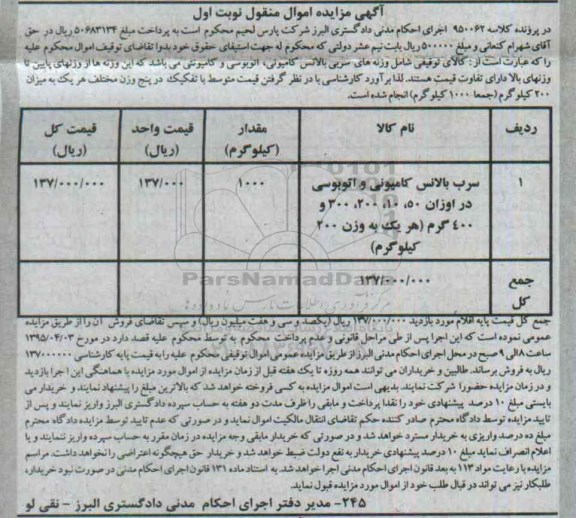 آگهی مزایده اموال منقول نوبت اول
در پرونده کلاسه ۹۵۰۰۶۲ اجرای احکام مدنی دادگستری البرز شرکت پارس لحیم محکوم است به پرداخت مبلغ ۵۰۶۸۳۱۳۴ ریال در حق
آقای شهرام کنعانی و مبلغ ۵۰۰۰۰۰ ریال بابت نیم عشر دولتی که محکوم له جهت استیفای حقوق خود بدوا تقاضای توقیف اموال محکوم علیه
را که عبارت است از: کالای توقیفی شامل وزنه های سربی بالانس کامیونی، اتوبوسی و کامیونتی می باشد که این وزنه ها از وزنهای پایین تا
وزنهای بالا دارای تفاوت قیمت هستند. لذا بر آورد کارشناسی با در نظر گرفتن قیمت متوسط با تفکیک در پنج وزن مختلف هر یک به میزان
۲۰۰ کیلو گرم (جمعا ۱۰۰۰ کیلو گرم) انجام شده است.
ردیف نام کالا مقدار (کیلوگرم) قیمت واحد (ریال) قیمت کل (ریال)
۱ سرب بالانس کامیونی و اتوبوسی ۱۰۰۰ ۱۳۷/۰۰۰ ۱۳۷/۰۰۰/۰۰۰
در اوزان ۵۰، ۱۰، ۲۰۰، ۳۰۰ و
۴۰۰ گرم (هر یک به وزن ۲۰۰
کیلوگرم)
جمع کل ۱۳۷/۰۰۰/۰۰۰
ParsNamadData
جمع کل قیمت پایه اقلام مورد بازدید ۱۳۷/۰۰۰/۰۰۰ ریال (یکصد و سی و هفت میلیون ریال) و سپس تقاضای فروش آن را از طریق مزایده
عمومی نموده است که این اجرا پس از طی مراحل قانونی و عدم پرداخت محکوم به توسط محکوم علیه قصد دارد در مورخ ۱۳۹۵/۰۴/۰۳
ساعت ۸ الی ۹ صبح در محل اجرای احکام مدنی البرز از طریق مزایده عمومی اموال توقیفی محکوم علیه را به قیمت پایه کارشناسی ۱۳۷۰۰۰۰۰۰
ریال به فروش برساند. طالبین و خریداران می توانند همه روزه تا یک هفته قبل از زمان مزایده از اموال مورد مزایده با هماهنگی این اجرا بازدید
و در زمان مزایده حضورا شرکت نمایند. بدیهی است اموال مزایده به کسی فروخته خواهد شد که بالاترین مبلغ را پیشنهاد نمایند و خریدار می
بایستی مبلغ ۱۰ درصد پیشنهادی خود را نقدا پرداخت و مابقی را ظرف مدت دو هفته به حساب سپرده دادگستری البرز واریز نمایند و پس از
تایید مزایده توسط دادگاه محترم صادر کننده حکم تقاضای انتقال مالکیت اموال نماید و در صورتی که عدم تایید توسط مزایده دادگاه محترم
مبلغ ده درصد واریزی به خریدار مسترد خواهد شد و در صورتی که خریدار مابقی وجه مزایده در زمان مقرر به حساب سپرده واریز ننمایند و یا
اعلام انصراف نماید مبلغ ۱۰ درصد پیشنهادی خریدار به نفع دولت ضبط خواهد شد و خریدار حق هیچگونه اعتراضی را نخواهد داشت. مراسم
مزایده با رعایت مواد ۱۱۳ به بعد قانون اجرای احکام مدنی اجرا خواهد شد. به استناد ماده ۱۳۱ قانون اجرای احکام مدنی در صورت نبود خریدار،
طلبکار نیز می تواند در قبال طلب خود از اموال مورد مزایده قبول نماید.
۲۴۵- مدیر دفتر اجرای احکام مدنی دادگستری البرز - نقی لو